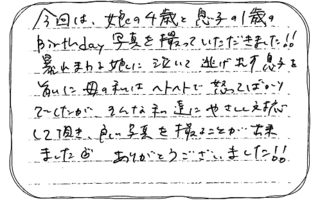 今回は、娘の4歳と息子の1歳の
Birthday 写真を撮っていただきました!!
暴れまわる娘に泣いて逃げ出す息子を
前に母の私はヘトヘトで怒ってばかり
でしたが そんな私達にやさしく対応
して頂き、良い写真を撮ることが出来
ました ありがとうございました!!